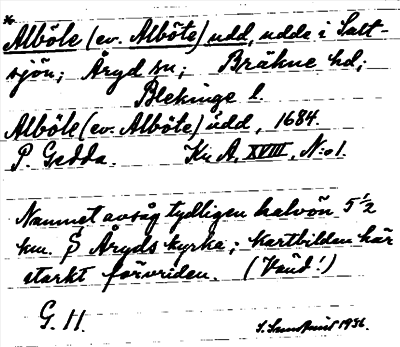 * Alböle (ev. Alböte) udd, udde i Salt-
sjön; Åryd sn; Bräkne hd;
Blekinge l.
Alböle (ev. Alböte) udd, 1684.
P. Gedda. Kr A, XVIII, N:o 1.
Namnet avsåg tydligen halvön 5 ½
km. S Åryds kyrka; kartbilden här
starkt förvriden. (Vänd!)
G. H. 1936.